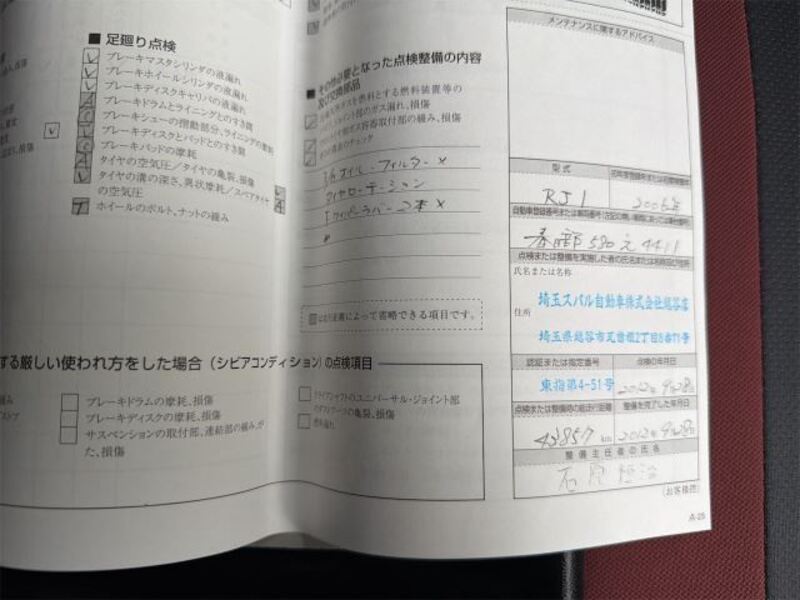 ■ 足廻り点検
ブレーキマスタシリンダの液漏れ
ブレーキホイールシリンダの液漏れ
ブレーキディスクキャリパの液漏れ
ブレーキドラムとライニングとのすき間
ブレーキシューの摺動部分、ライニングの摩耗
ブレーキディスクとパッドとのすき間
ブレーキパッドの摩耗
タイヤの空気圧／タイヤの亀裂、損傷
タイヤの溝の深さ、異状摩耗／スペアタイヤ
の空気圧
ホイールのボルト、ナットの緩み
■ その他必要となった点検整備の内容
及び交換部品
ガスを燃料とする燃料装置等の
ジョイント部のガス漏れ、損傷
ガス容器取付部の緩み、損傷
オイル・フィルター ×
タイヤローテーション
ワイパーラバー 2本 ×
によって省略できる項目です。
する厳しい使われ方をした場合（シビアコンディション）の点検項目
ブレーキドラムの摩耗、損傷
ブレーキディスクの摩耗、損傷
サスペンションの取付部、連結部の緩み、が
た、損傷
ドライブシャフトのユニバーサル・ジョイント部
の亀裂、損傷
メンテナンスに関するアドバイス
型式
RJ1
2006年
春日部 580 え 4411
点検または整備を実施した者の氏名または名称及び住所
氏名または名称
埼玉スバル自動車株式会社越谷店
住所
埼玉県越谷市瓦曽根2丁目8番11号
認証または指定番号
点検の年月日
東指第4-51号
2012年9月28日
点検または整備時の総走行距離
整備を完了した年月日
43857 km
2012年9月28日
整備主任者の氏名
（お客様控）
A-25